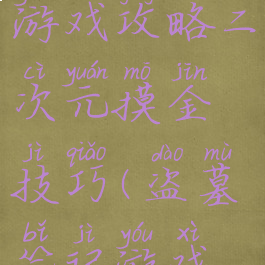 游戏攻略二
cì yuán mō jīn
次元摸金
jì qiǎo dào mù
技巧(盗墓
bǐ jì yóu xì
笔记游戏